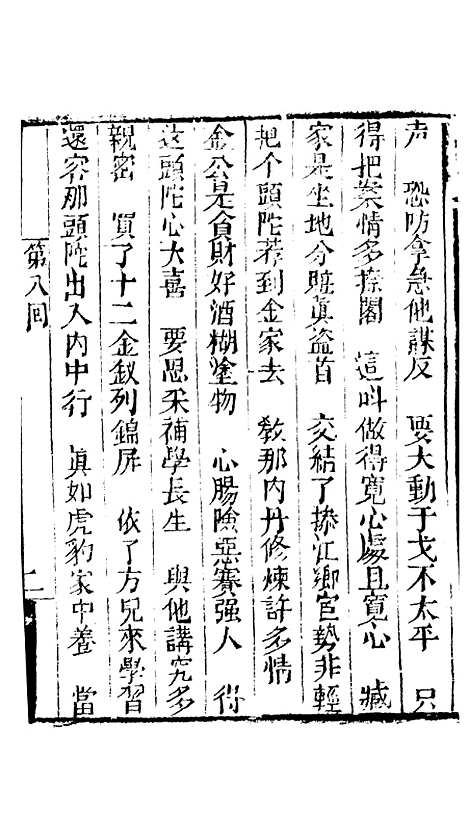 声 恐防拿急他謀反 要大動干戈不太平 只
得把案情多捺閣 這叫做得寬心處且寬心 臧
家是坐地分賍真盗首 交結了掺江鄉宦勢非輕
把个頭陀荐到金家去 教那内丹修煉許多情
金公是貪財好酒糊塗物 心腸險惡賽强人 得
这頭陀心大喜 要思采補學長生 與他講究多
親密 買了十二金釵列錦屏 依了方兒來學習
還容那頭陀出入内中行 真如虎豹家中養 當
第八回 二